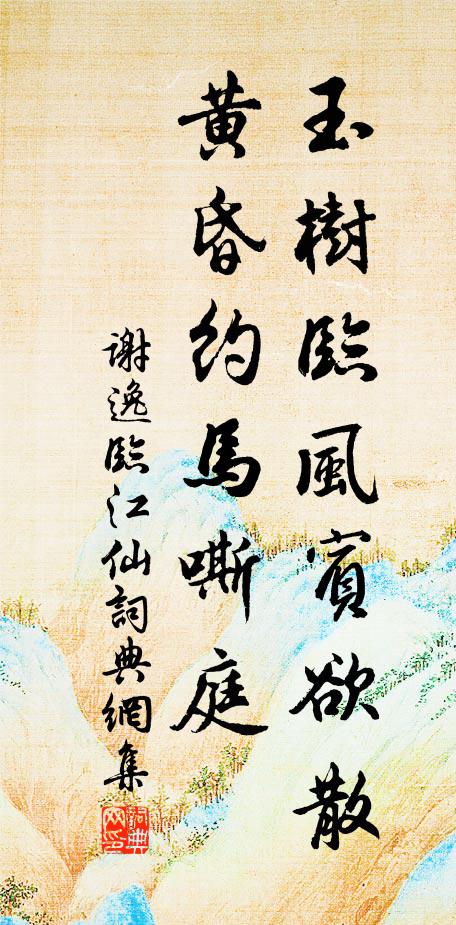 玉樹臨風賓欲散
黃昏約馬嘶庭
謝逸臨江仙詞典網集
詞典網印